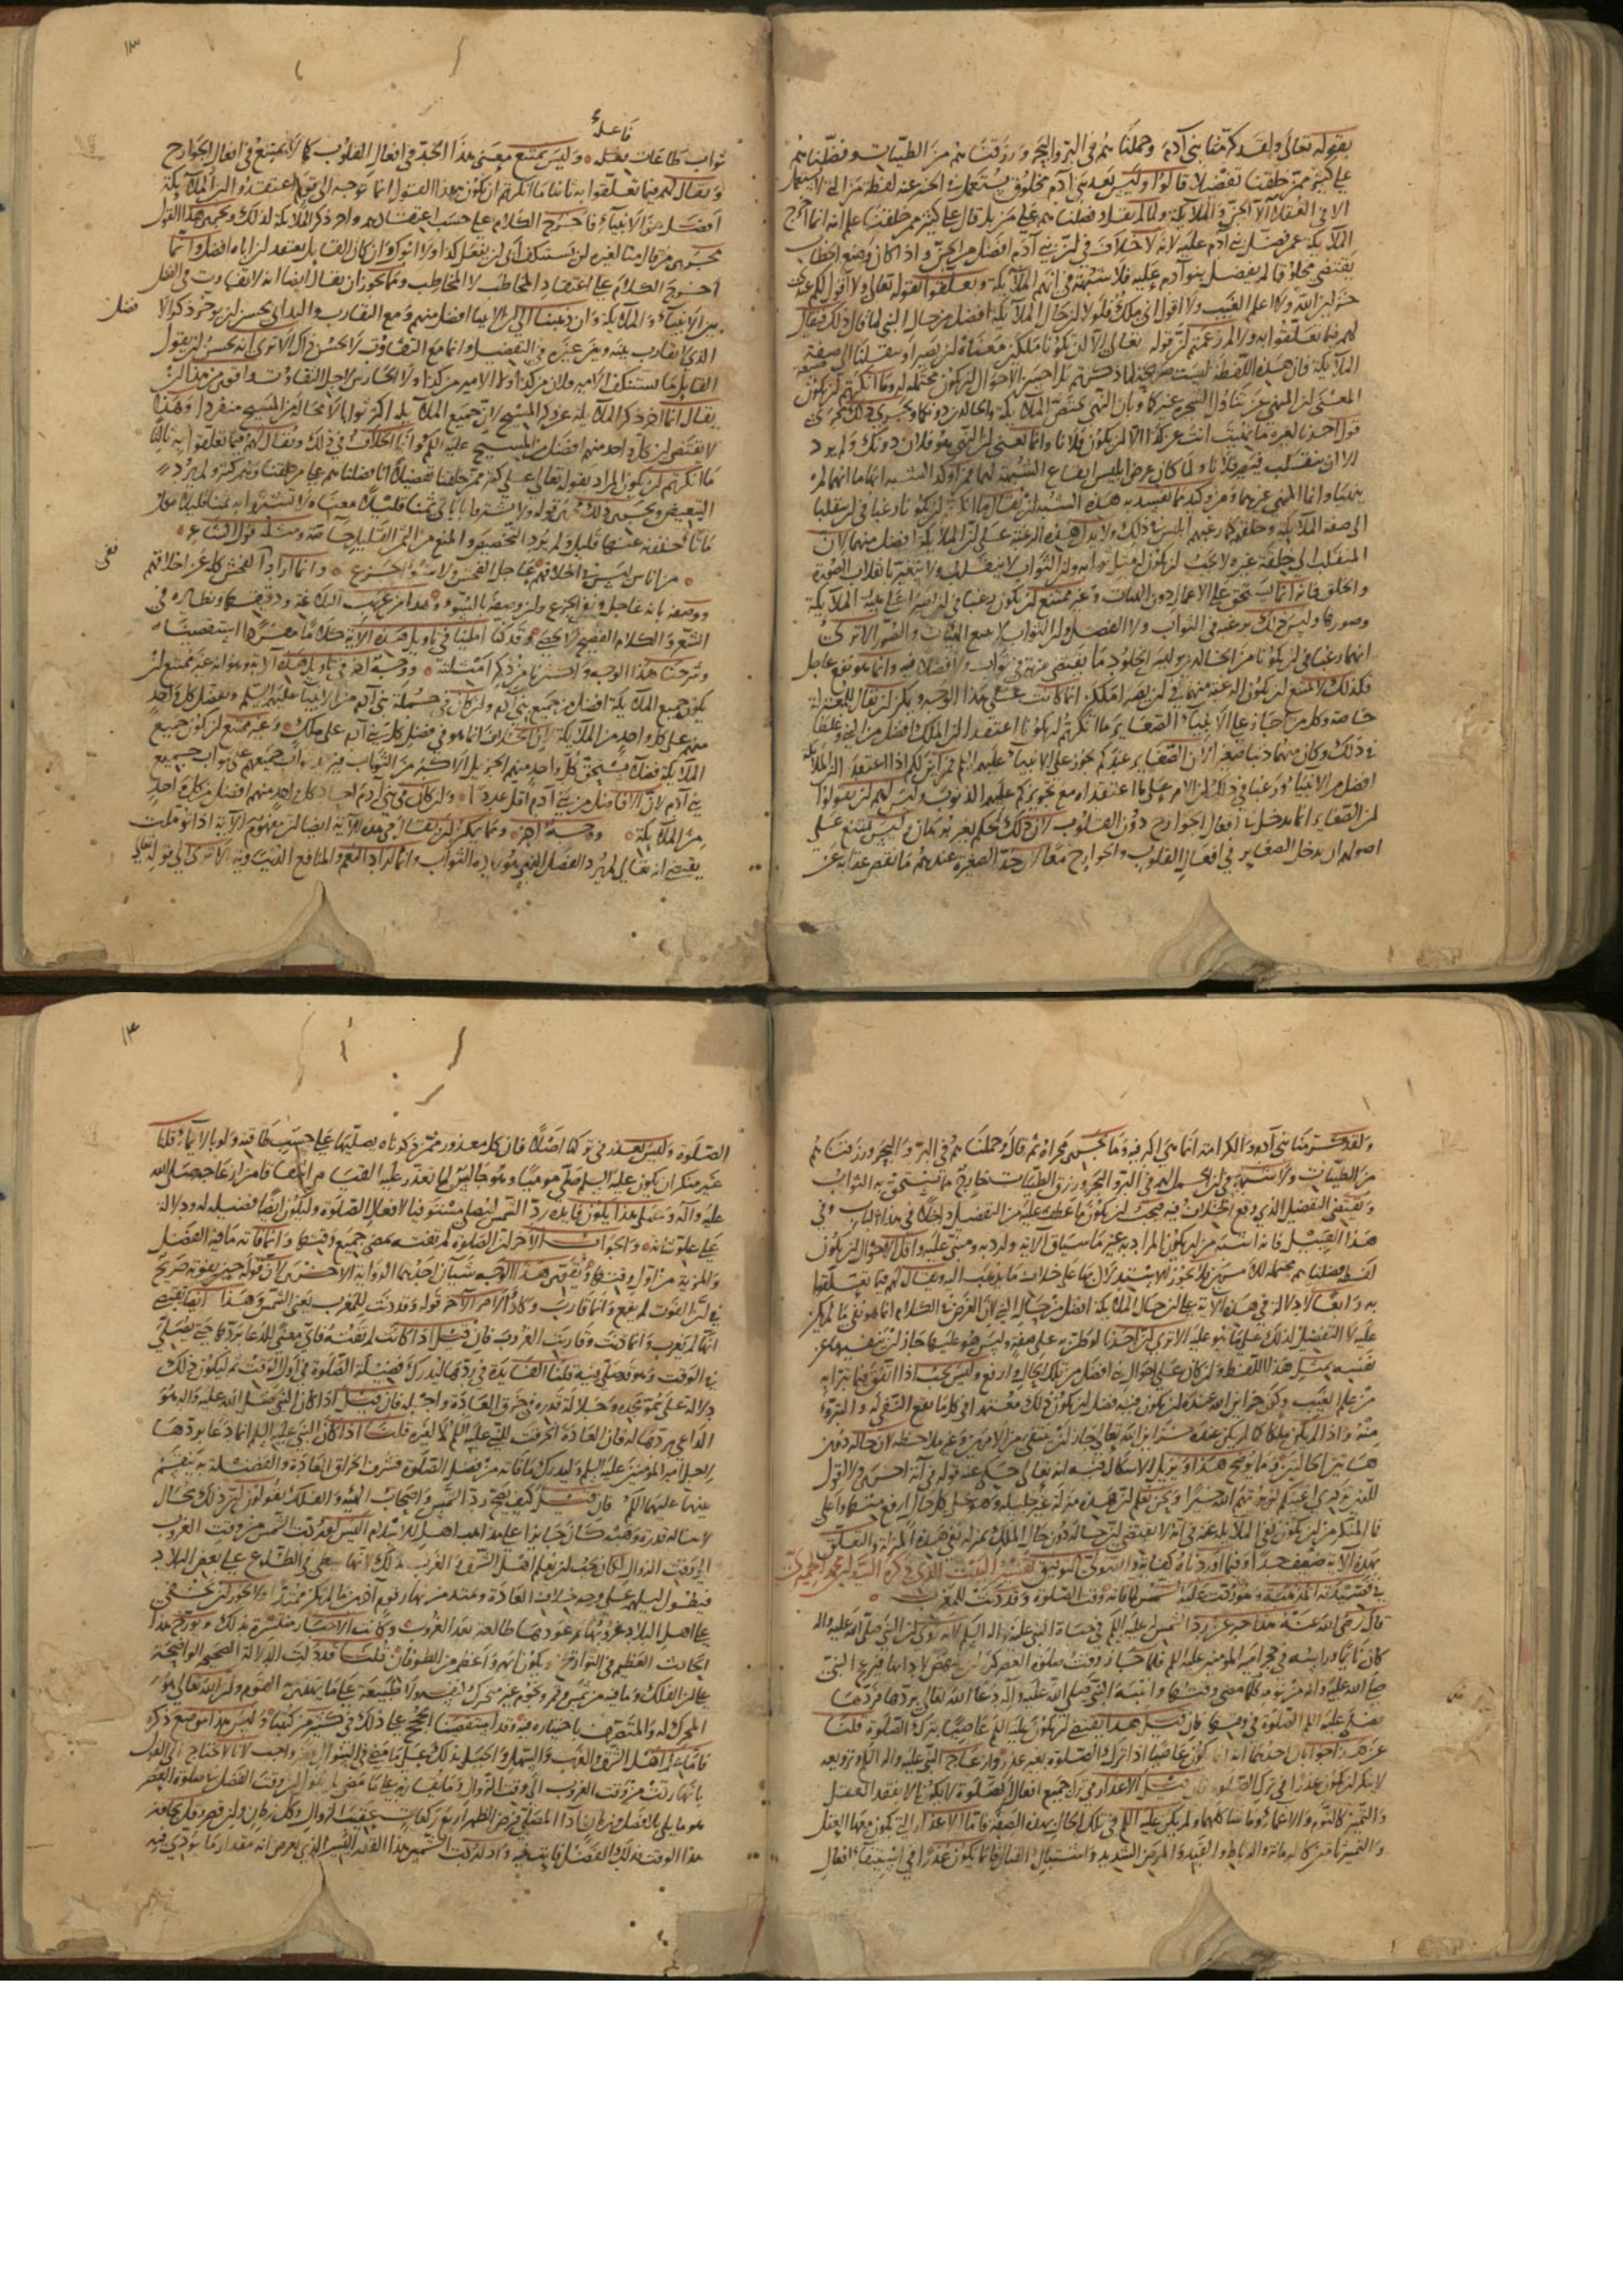 بقوله تعالى ولقد كرمنا بني آدم وحملناهم في البر والبحر ورزقناهم من الطيبات وفضلناهم
على كثير ممن خلقنا تفضيلا قالوا وليس بعد بني آدم مخلوق يستعمل في الخبر عنه لفظة من التي لا تستعمل
الا في العقلاء الا الجن والملائكة ولما لم يقل وفضلناهم على من بل قال على كثير ممن خلقنا علم انه انما اخرج
الملائكة عمن فضل بني آدم عليه لانه لا خلاف في ان بني آدم افضل من الجن واذا كان وضع الخطاب
يقتضي مخلوقا لم يفضل بنو آدم عليه فلا شبهة في انهم الملائكة وتعلقوا بقوله تعالى ولا اقول لكم عندي
خزاين الله ولا اعلم الغيب ولا اقول اني ملك فلولا ان حال الملائكة افضل من حال النبي لما قال ذلك فيقال
لهم فيما تعلقوا به اولا لم زعمتم ان قوله تعالى الا ان تكونا ملكين معناه ان تصيرا وتنقلبا الى صفة
الملائكة فان هذه اللفظة ليست صريحة لما ذكرتم بل احسن الاحوال ان يكون محتملة له وما انكرتم ان يكون
المعنى ان المنهي عن تناول الشجرة غيركما وبان النهي يختص الملائكة والخالدين دونكما ويجري ذلك مجرى
قول احدنا لغيره ما نهيت انت عن كذا الا ان يكون فلانا وانما يعني ان المنهي هو فلان دونك ولم يرد
الا ان ينقلب فيصير فلانا ولما كان غرض ابليس ايقاع الشبهة لهما فمن اوكد الشبه ايهامهما انهما لم
ينهيا وانما المنهي غيرهما ومن وكيد ما تفسد به هذه الشبهة ان يقال ما انكرتم ان يكونا رغبا في ان ينقلبا
الى صفة الملائكة وخلقهم كما رغبهم ابليس في ذلك ولا تدل هذه الرغبة على ان الملائكة افضل منهما لان
المنقلب الى خلقة غيره لا يجب ان يكون مثل ثوابه وان الثواب لا ينقلب ولا يتغير بانقلاب الصورة
والخلق فانه انما يستحق على الاعمال دون الهيئات وغير ممتنع ان يكون رغبا في ان يصيرا على هيئة الملائكة
وصورها وليس ذلك برغبة في الثواب ولا الفضل وان الثواب لا يتبع الهيئات والصور الا ترى
انهما رغبا في ان يكونا من الخالدين وليس الخلود مما يقتضي مزية في ثواب ولا فضلا فيه وانما هو نفع عاجل
فكذلك لا يمتنع ان يكون الرغبة منهما في ان يصيرا ملكين انما كانت على هذا الوجه ويمكن ان يقال للمعتزلة
خاصة وكل من اجاز على الانبياء الصغاير ما انكرتم ان يكونا اعتقدا ان الملك افضل من النبي وغلطا
في ذلك وكان منهما ذنبا صغيرا لان الصغاير عندكم تجوز على الانبياء عليهم السلم فمن اين لكم اذا اعتقدا ان الملائكة
افضل من الانبياء ورغبا في ذلك ان الامر على ما اعتقداه مع تجويزكم عليهم الذنوب وليس لهم ان يقولوا
ان الصغاير انما تدخل في افعال الجوارح دون القلوب لان ذلك تحكم بغير برهان وليس يمتنع على
اصولهم ان يدخل الصغاير في افعال القلوب والجوارح معا لان حد الصغيرة عندهم ما نقص عقابه عن
١٢
فاعله
ثواب طاعات بعله وليس يمتنع معنى هذا الحد في افعال القلوب كما لا يمتنع في افعال الجوارح
ويقال لهم فيما تعلقوا به ثانيا ما انكرتم ان يكون هذا القول انما توجه الى قوم اعتقدوا ان الملائكة
افضل من الانبياء فاخرج الكلام على حسب اعتقادهم واخر ذكر الملائكة لذلك ويجري هذا القول
مجرى من قال منا لغيره لن يستنكف ابي ان يفعل كذا ولا ابوك وان كان القايل يعتقد ان اباه افضل وانما
اخرج الكلام على اعتقاد المخاطب لا المخاطب ومما يجوز ان يقال ايضا انه لا تفاوت في الفضل
بين الانبياء والملائكة وان ذهبنا الى ان الانبيا افضل منهم ومع التقارب والتداني يحسن ان يوخر ذكر الا
فضل
الذي لا تقارب بينه وبين غيره في التفضيل وانما مع التفاوت لا يحسن ذلك الا ترى انه يحسن ان يقول
القايل ما يستنكف الامير فلان من كذا ولا الامير من كذا
يقال انما اخر ذكر الملائكة عن ذكر المسيح لان جميع الملائكة اكثر ثوابا لا محالة من المسيح منفردا وهذا
لا يقتضي ان كل واحد منهم افضل من المسيح عليه السلم وانما الخلاف في ذلك ويقال لهم فيما تعلقوا به ثالثا
ما انكرتم ان يكون المراد بقوله تعالى على كثير ممن خلقنا تفضيلا انا فضلناهم على من خلقنا وهم كثير ولم يرد
التبعيض ويجري ذلك مجرى قوله ولا تشتروا باياتي ثمنا قليلا معناه لا تشتروا بها ثمنا قليلا وكل
ما تاخذونه عنها قليل ولم يرد التخصيص والمنع من الثمن القليل خاصة ومثله قول الشاعر
من اناس ليس في اخلاقهم عاجل الفحش ولا سوء الجزع وانما اراد نفى الفحش كله عن اخلاقهم
نفى
ووصفه بانه عاجل ونفى الجزع وان وصفه بالسوء وهذا من غريب البلاغة ودقيقها ونظايره في
الشعر والكلام الفصيح لا تحصى وقد كنا املينا في تاويل هذه الاية كلاما مفردا استقصيناه
وشرحنا هذا الوجه واكثرنا من ذكر امثلته ووجه آخر في تاويل هذه الآية وهو انه غير ممتنع ان
يكون جميع الملائكة افضل من جميع بني آدم وان كان في جملة بني آدم من الانبيا عليهم السلم من يفضل كل واحد
منهم على كل واحد من الملائكة لان الخلاف انما هو في فضل كل نبي آدم على ملك وغير ممتنع ان يكون جميع
الملائكة فضلا يستحق كل واحد منهم الجزيل الاكثر من الثواب فيزيد ثواب جميعهم على ثواب جميع
بني آدم لان الافاضل من بني آدم اقل عددا وان كان في بني آدم احاد كل واحد منهم افضل من كل واحد
من الملائكة ووجه آخر ومما يمكن ان يقال في هذه الآية ايضا ان مفهوم الآية اذا تؤملت
يقتضي انه تعالى لم يرد الفضل الذي هو زيادة الثواب وانما اراد النعم والمنافع الدنياوية الا ترى الى قوله تعالى
ولقد كرمنا بني آدم والكرامة انما هي الترفيه وما يجري مجراه ثم قال وحملناهم في البر والبحر ورزقناهم
من الطيبات ولا شبهة في ان الحمل لهم في البر والبحر ورزق الطيبات خارج مما يستحق به الثواب
ويقتضي التفضيل الذي وقع الخلاف فيه فيجب ان يكون ما عطف عليه من التفضيل داخلا في هذا الباب وفي
هذا القبيل فانه اشبه من ان يكون المراد به غير ما سياق الآية وارد به ومبني عليه واقل الاحوال ان يكون
لفظة فضلناهم محتملة للامرين فلا يجوز الاستدلال بها على خلاف ما يذهب اليه ويقال لهم فيما تعلقوا
به رابعا لا دلالة في هذه الآية على ان حال الملائكة افضل من حال النبي لان الغرض في الكلام انما هو نفي ما لم يكن
عليه لا التفضيل لذلك على ما هو عليه الا ترى ان احدنا لو ظن به على صفة وليس هو عليها جاز ان ينفيها عن
نفسه بمثل هذا اللفظ وان كان على احوال هي افضل من تلك الحال وارفع وليس يجب اذا اتفق فيما تبرا به
من علم الغيب وكون خزاين الله عنده ان يكون فيه فضل ان يكون ذلك معتمدا في كل ما يقع النفي له والتبرؤ
منه واذا لم يكن ملكا كما لم يكن عنده خزاين الله تعالى جاز ان ينتفي من الامرين من غير ملاحظة لان حاله دون
هاتين الحالتين ومما يوضح هذا ويزيل الاشكال فيه انه تعالى حكى عنه قوله في آية اخرى ولا اقول
للذين تزدري اعينكم لن يوتيهم الله خيرا ونحن نعلم ان هذه منزلة غير جليلة وهو على كل حال ارفع منها واعلى
فما المنكر من ان يكون نفي الملائكة عنه في انه لا يقتضي ان حاله دون حال الملك بمنزلة نفي هذه المنزلة والتعلق
بهذه الآية ضعيف جدا وفيما اوردناه كفاية والله ولي التوفيق تفسير البيت الذي ذكره السيد ابن محمد الحميري
في قصيدته المذهبة وهو ردت عليه الشمس لما فاته وقت الصلوة وقد دنت للمغرب
قال رضي الله عنه هذا خبر عن رد الشمس له عليه السلم في حياة النبي عليه وآله السلم لانه روي ان النبي صلى الله عليه وآله
كان نايما وراسه في حجر امير المؤمنين عليه السلم فلما حان وقت صلوة العصر كره ان ينهض لادائها فيزعج النبي
صلى الله عليه وآله من نومه فلما مضى وقتها وانتبه النبي صلى الله عليه وآله دعا الله تعالى بردها فردها
فصلى عليه السلم الصلوة في وقتها فان قيل هذا يقتضي ان يكون عليه السلم عاصيا بترك الصلوة قلنا
عن هذا جوابان احدهما انه انما يكون عاصيا اذا ترك الصلوة بغير عذر وازعاج النبي عليه وآله السلم وترويعه
لا ينكر ان يكون عذرا في ترك الصلوة فان قيل الاعذار في ترك جميع افعال الصلوة لا يكون الا بفقد العقل
والتميز كالنوم والاغماء وما شاكلهما ولم يكن عليه السلم في تلك الحال بهذه الصفة فاما الاعذار التي يكون معها العقل
والتمييز ثابتين كالزمانة والرباط والقيد والمرض الشديد واشتباك القتال فانما يكون عذرا في استيفاء افعال
١٣
الصلوة وليس بعذر في تركها اصلا فان كل معذور ممن ذكرناه يصليها على حسب طاقته ولو بالايماء قلنا
غير منكر ان يكون عليه السلم صلى موميا وهو جالس لما تعذر عليه القيام اشفاقا من ازعاجه صلى الله
عليه وآله وعلى هذا يكون فايدة رد الشمس ليصلي مستوفيا لافعال الصلوة وليكون ايضا فضيلة له ودلالة
على علو شانه والجواب الآخر ان الصلوة لم تفته بمضي جميع وقتها وانما فاته ما فيه الفضل
والمزية من اول وقتها ويقوي هذا الوجه شيئان احدهما الرواية الاخرى لان قوله حين تفوته صريح
في ان الفوت لم يقع وانما قارب وكاد والامر الآخر قوله وقد دنت للمغرب يعني الشمس وهذا ايضا يقتضي
انها لم تغرب وانما دنت وقاربت الغروب فان قيل اذا كانت لم تفته فاي معنى للدعا بردها حتى يصلي
في الوقت وهو قد صلى فيه قلنا الفايدة في ردها ليدرك فضيلة الصلوة في اول الوقت ثم ليكون ذلك
دلالة على سمو مجده وجلالة قدره في خرق العادة من اجله فان قيل اذا كان النبي صلى الله عليه وآله هو
الداعي بردها له فان العادة انخرقت للنبي عليه السلم لا لغيره قلنا اذا كان النبي عليه السلم انما دعا بردها
لاجل امير المؤمنين عليه السلم وليدرك ما فاته من فضل الصلوة فشرف انخراق العادة والفضيلة به ينقسم
بينهما عليهما السلم فان قيل كيف يصح رد الشمس واصحاب الهيئة والفلك يقولون ان ذلك محال
لا تناله قدرة وهبه كان جايزا على مذاهب اهل الاسلام اليس لو ردت الشمس من وقت الغروب
الى وقت الزوال لكان يجب ان يعلم اهل الشرق والغرب بذلك لانها تبطي في الطلوع على بعض البلاد
فيطول ليلهم على وجه خلاف العادة ويمتد من نهار قوم آخرين ما لم يكن ممتدا ولا يجوز ان يخفى
على اهل البلاد غروبها ثم عودها طالعة بعد الغروب وكانت الاخبار منتشرة بذلك ويورخ هذا
الحادث العظيم في التواريخ ويكون ابهر واعظم من الطوفان قلنا قد دلت الدلالة الصحيحة الواضحة
على ان الفلك وما فيه من شمس وقمر ونجوم غير متحرك بنفسه ولا بطبيعة على ما يهذي به القوم وان الله تعالى هو
المحرك له والمتصرف باختياره فيه وقد استقصينا الحجج على ذلك في كثير من كتبنا وليس هذا موضع ذكره
فاما علم اهل الشرق والغرب والسهل والجبل بذلك على ما مضى في السؤال فغير واجب لانا لا نحتاج الى القول
بانها ردت من وقت الغروب الى وقت الزوال وما يقاربه على ما مضى بل نقول ان وقت الفضل في صلوة العصر
هو ما يلي بلا فصل زمان ادآ المصلي فرض الظهر اربع ركعات عقيب الزوال وكل زمان وان قصر وقل يجاوز
هذا الوقت فذلك الفضل فايت فيه واذا ردت الشمس هذا القدر اليسير الذي يفرض انه مقدار ما يؤدى فيه